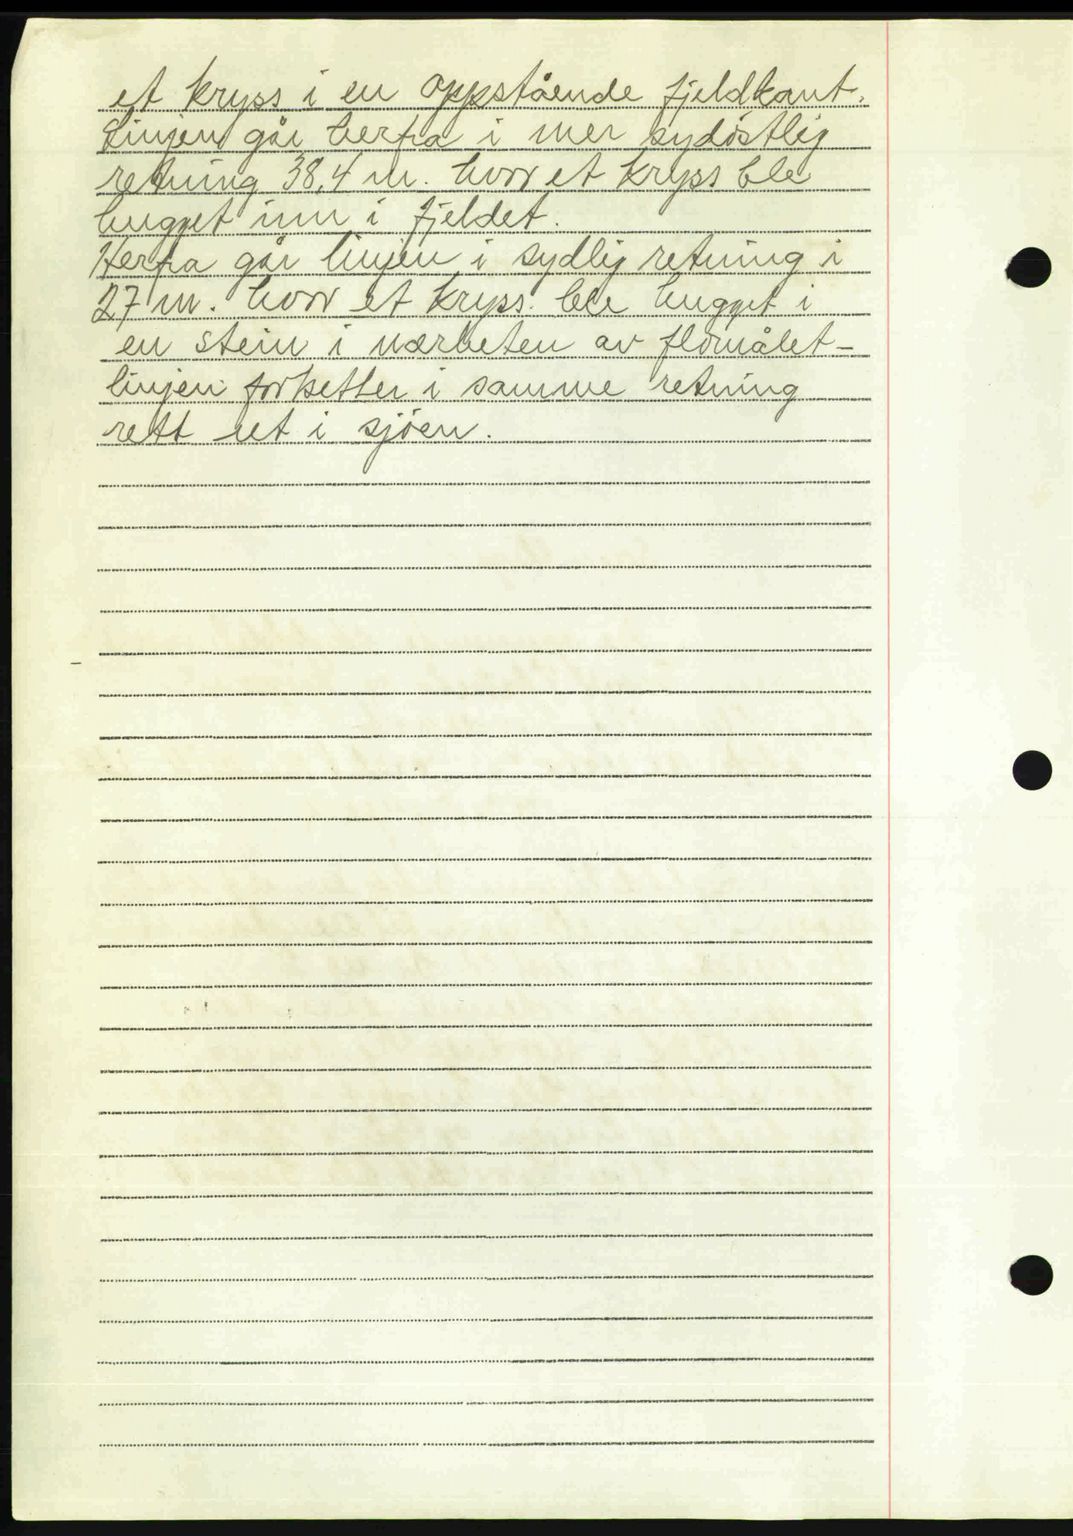 et kryss i en oppstående fjeldkant.
Linjen går herfra i mer sydöstlig
retning 38,4 m. hvor et kryss ble
hugget inn i fjeldet.
Herfra går linjen i sydlig retning i
27 m. hvor et kryss ble hugget i
en stein i nærheten av flomålet-
linjen fortsetter i samme retning
rett ut i sjöen.